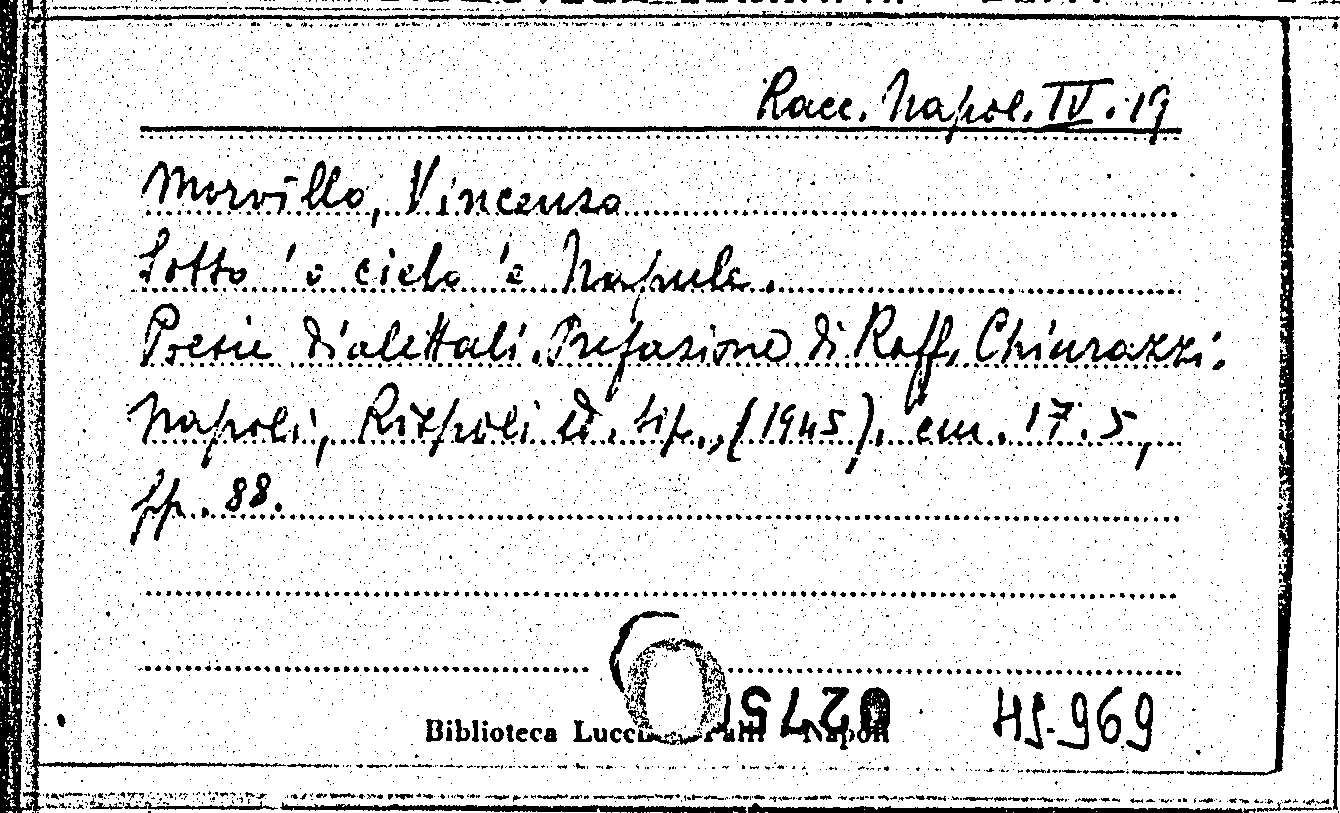 Racc. Napol. IV. 19
Morvillo, Vincenzo
Sotto 'o cielo 'e Napule.
Poesie dialettali. Prefazione di Raff. Chiurazzi.
Napoli, Rispoli ed. tip., (1945). cm. 17.5,
pp. 88.
Biblioteca Napoli
49.969